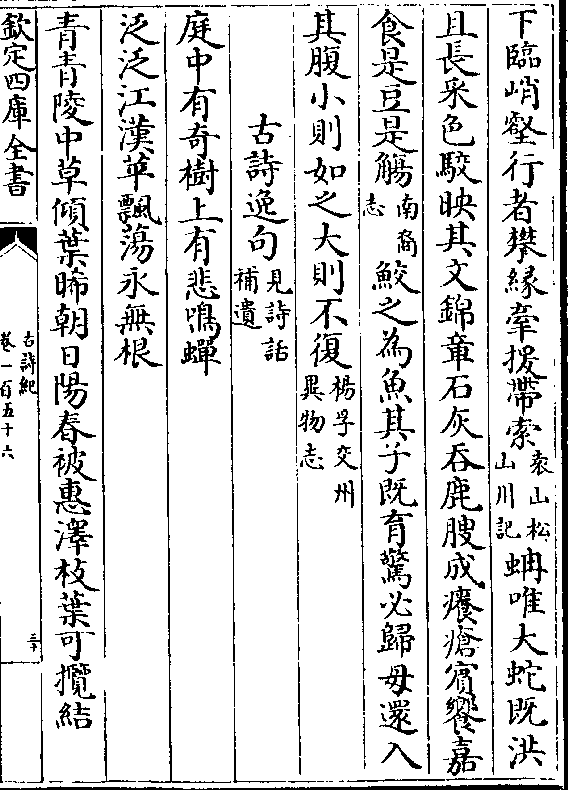 下臨峭壑行者攀緣牽援帶索袁山松山川記蚺唯大蛇既洪
且長采色駮映其文錦章石灰吞鹿腴成癢瘡賓饗嘉
食是豆是觴南裔志鮫之為魚其子既育驚必歸母還入
其腹小則如之大則不復楊孚交州異物志
古詩逸句見詩話補遺
庭中有奇樹上有悲鳴蟬
泛泛江漢苹飄蕩永無根
青青陵中草傾葉晞朝日陽春被惠澤枝葉可攬結
欽定四庫全書
古詩紀
卷一百五十六
三十